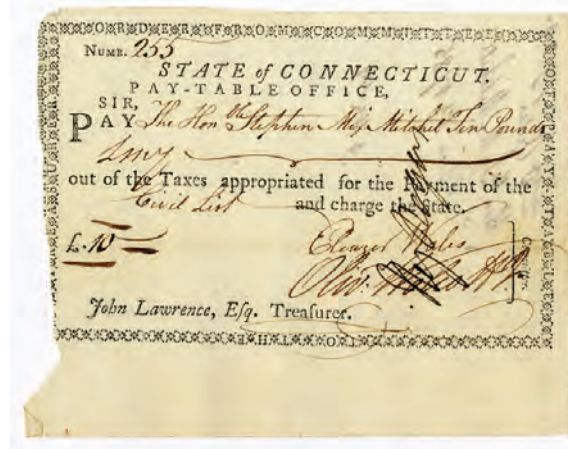 ORDER FROM COMMITTEE OF PAY-TABLE
NUMB. 255
STATE of CONNECTICUT.
PAY-TABLE OFFICE,
SIR,
PAY The Honble Stephen Mix Mitchel Ten Pounds
Lawy
out of the Taxes appropriated for the Payment of the
Civil List and charge the State.
£. 10
Eleazer Wales
Oliv.
John Lawrence, Esq. Treasurer.
TO THE